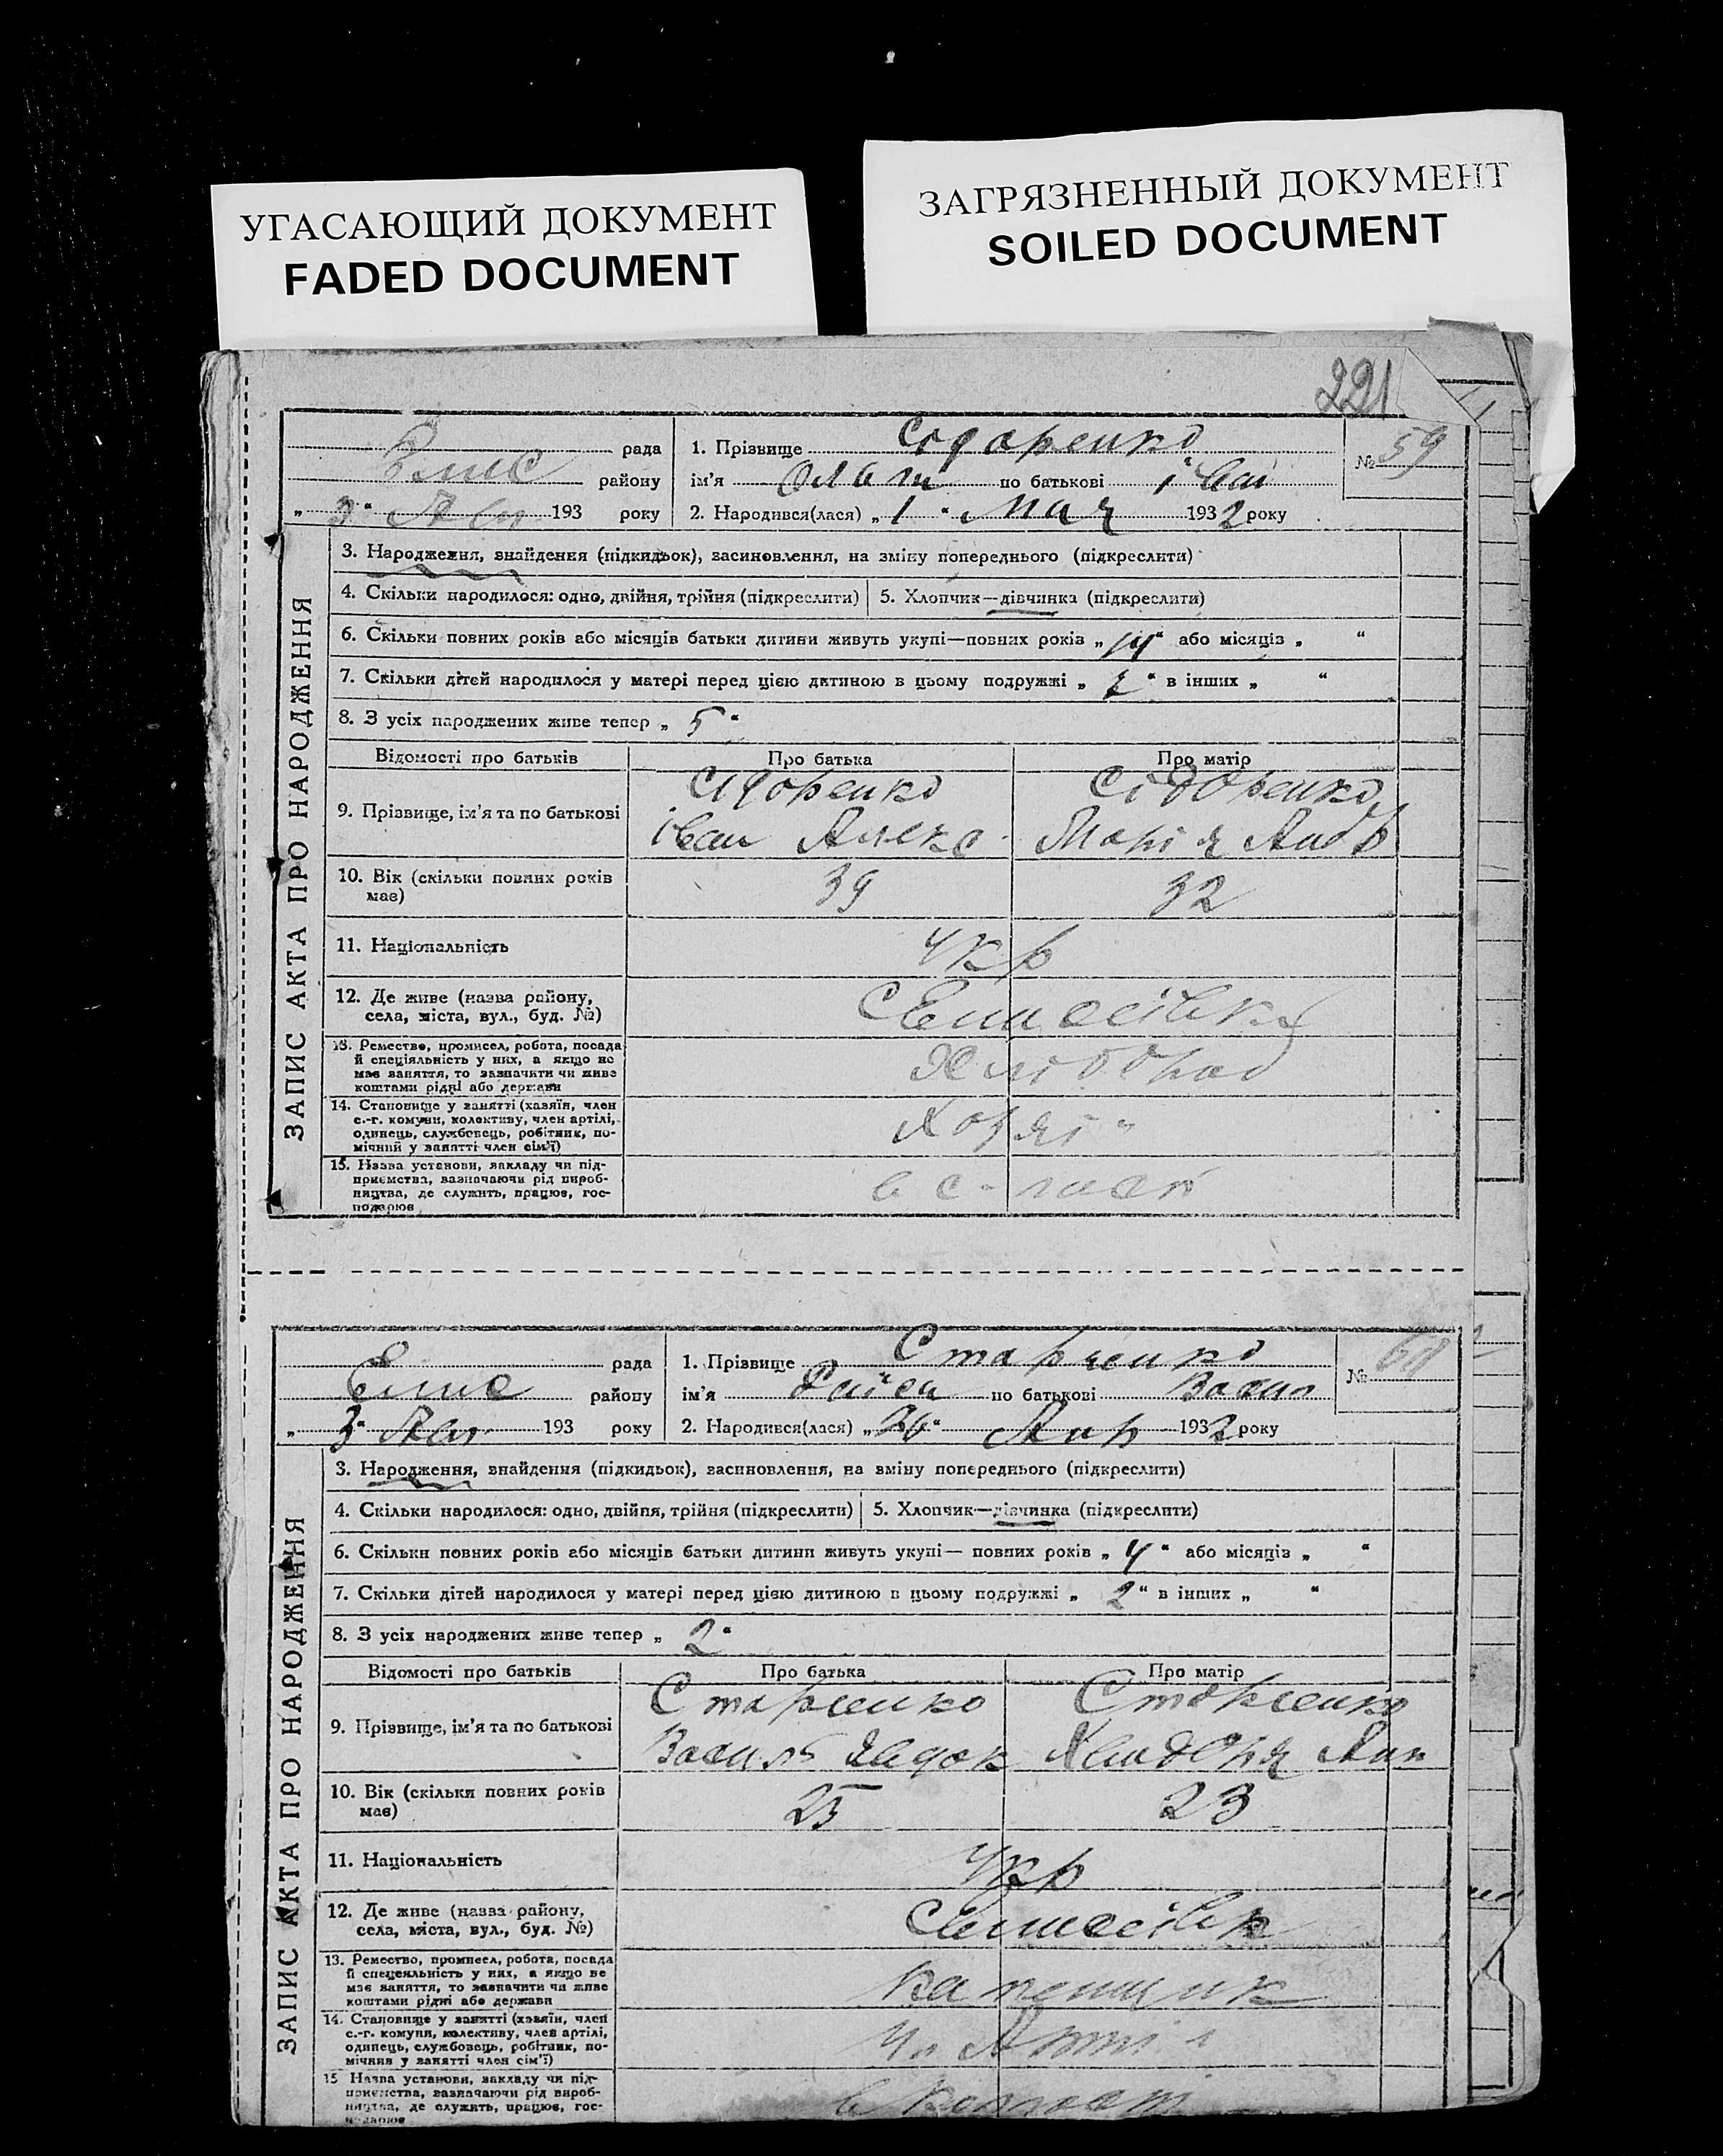 УГАСАЮЩИЙ ДОКУМЕНТ
FADED DOCUMENT
ЗАГРЯЗНЕННЫЙ ДОКУМЕНТ
SOILED DOCUMENT
221
рада
району
„3“ 193 року
1. Прізвище Сідоренко
ім'я по батькові Іван
2. Народився(лася) „1“ Мая 1932 року
№ 59
ЗАПИС АКТА ПРО НАРОДЖЕННЯ
3. Народження, знайдення (підкидьок), засиновлення, на зміну попереднього (підкреслити)
4. Скільки народилося: одно, двійня, трійня (підкреслити)
5. Хлопчик—дівчинка (підкреслити)
6. Скільки повних років або місяців батьки дитини живуть укупі—повних років „14“ або місяців „ “
7. Скільки дітей народилося у матері перед цією дитиною в цьому подружжі „ “ в інших „ “
8. З усіх народжених живе тепер „5“
Відомості про батьків Про батька Про матір
9. Прізвище, ім'я та по батькові
Сидоренко Сідоренко
іван Алекс Марія Андр
10. Вік (скільки повних років має) 39 32
11. Національність Укр
12. Де живе (назва району,
села, міста, вул., буд. №)
13. Ремество, промисел, робота, посада
й спеціяльність у них, а якщо не
має заняття, то зазначити чи живе
коштами рідні або держави
Хлібороб
14. Становище у занятті (хазяїн, член
с.-г. комуни, колективу, член артілі,
одинець, службовець, робітник, по-
мічний у занятті член сім'ї)
15. Назва установи, закладу чи під-
приємства, зазначаючи рід вироб-
ництва, де служить, працює, гос-
подарює
рада
району
„3“ 193 року
1. Прізвище Старченко
ім'я Раїса по батькові Васил
2. Народився(лася) „26“ Апр 1932 року
№ 60
ЗАПИС АКТА ПРО НАРОДЖЕННЯ
3. Народження, знайдення (підкидьок), засиновлення, на зміну попереднього (підкреслити)
4. Скільки народилося: одно, двійня, трійня (підкреслити)
5. Хлопчик—дівчинка (підкреслити)
6. Скільки повних років або місяців батьки дитини живуть укупі— повних років „4“ або місяців „ “
7. Скільки дітей народилося у матері перед цією дитиною в цьому подружжі „2“ в інших „ “
8. З усіх народжених живе тепер „2“
Відомості про батьків Про батька Про матір
9. Прізвище, ім'я та по батькові
Старченко Старченко
Василь
10. Вік (скільки повних років має) 25 23
11. Національність Укр
12. Де живе (назва району,
села, міста, вул., буд. №)
13. Ремество, промисел, робота, посада
й спецеяльність у них, а якщо не
має заняття, то зазначити чи живе
коштами рідні або держави
14. Становище у занятті (хазяїн, член
с.-г. комуни, колективу, член артілі,
одинець, службовець, робітник, по-
мічник у занятті член сім'ї)
15 Назва установи, закладу чи під-
приємства, зазначаючи рід вироб-
ництва, де служить, працює, гос-
подарює